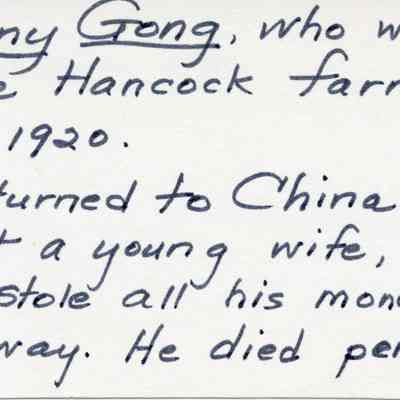 ny Gong, who w
e Hancock farr
1920.
turned to China
t a young wife,
stole all his mon
way. He died pen